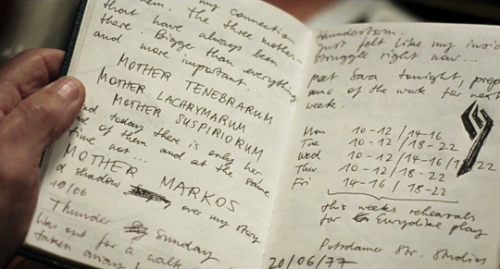 my connection
them. The three mothers
that have always been
there. Bigger than everything
and more important.
MOTHER TENEBRARUM
MOTHER LACHRYMARUM
MOTHER SUSPIRIORUM
and today there is only her
of them and at the same
time not...
MOTHER MARKOS
a shadow over my story
19/06
Thunder Sunday
Was out for a walk
taken away
thunderstorm.
Just felt like my inside
struggle right now...
met Sara tonight
some of the work for next
week.
Mon 10-12/14-16
Tue 10-12/18-22
Wed 10-12/14-16/
Thur 10-12/18-22
Fri 14-16/18-22
this weeks rehearsals
for Eurydice play
Potsdamer Str. Studios
20/06/77